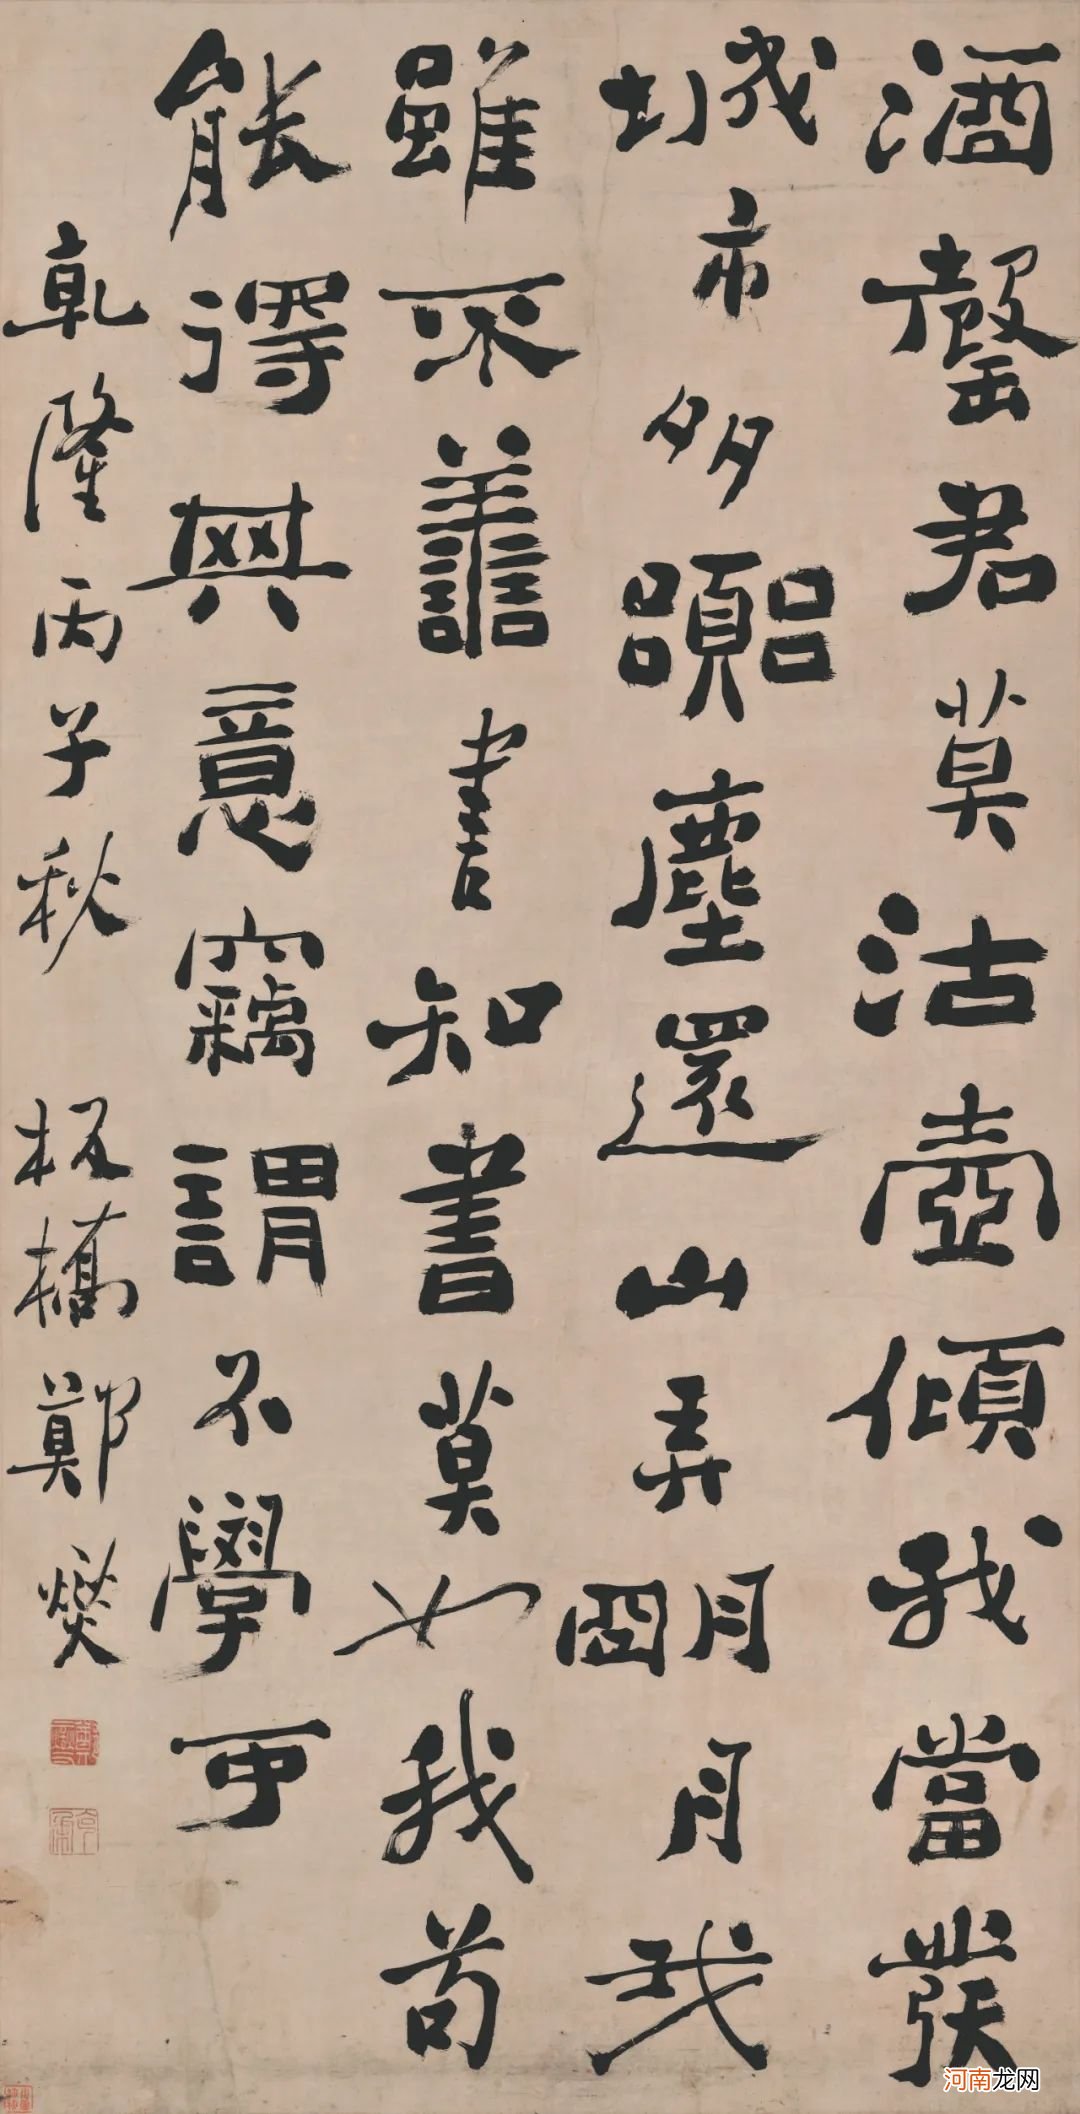 酒罄君莫沽壺傾我當發
城市多囂塵還山弄朙月我
雖不善書知書莫如我苟
能得其意竊謂不學可
乾隆丙子秋 板橋鄭燮
河南龙网